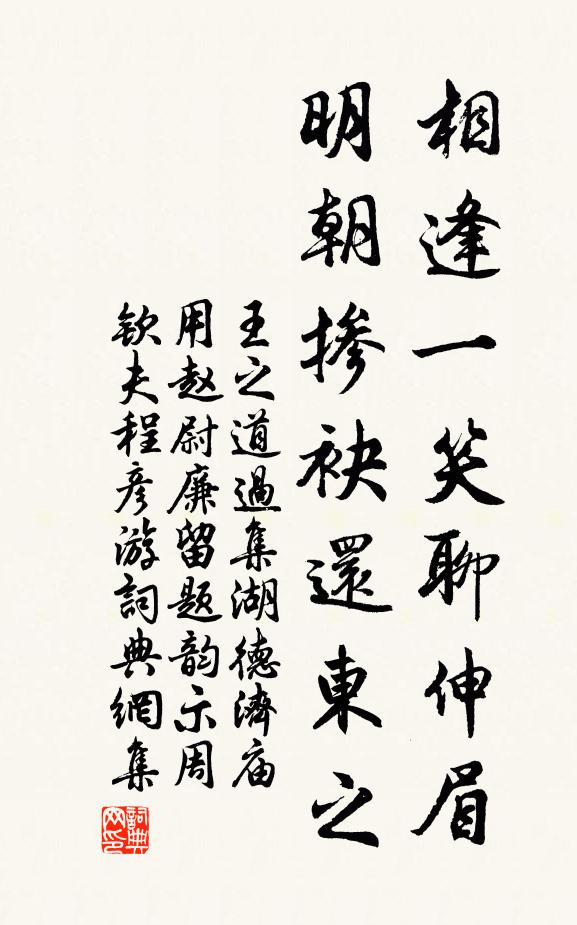 相逢一笑聊伸眉
明朝掺袂還東之
王之道過集湖德濟庙
用赵尉廉留题韵示周
欽夫程彦游詞典網集
詞典网印